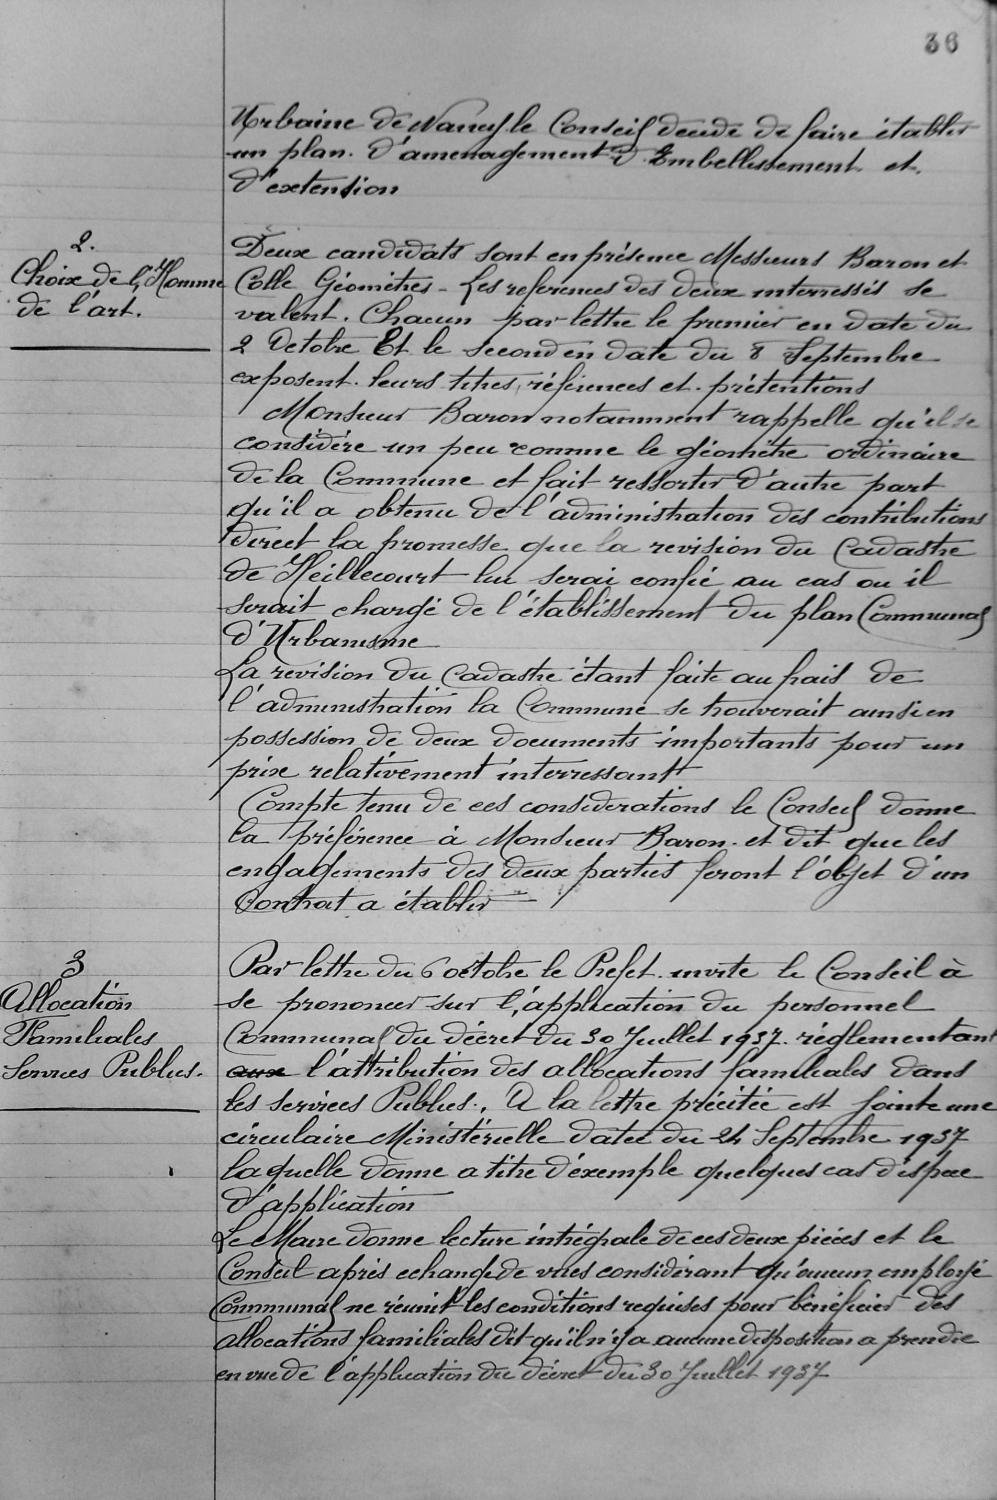 36
Urbaine de Nancy le Conseil decide de faire établir
un plan. d'amenagement d'Embellissement et.
d'extension
2.
Choix de l'Homme
de l'art.
Deux candidats sont en présence Messieurs Baron et
Colle Géomètres - Les references des deux interressés se
valent. Chacun par lettre le premier en date du
2 Octobre Et le second en date du 8 Septembre
exposent. leurs titres, références et. prétentions
Monsieur Baron notamment rappelle qu'il se
considère un peu comme le géomètre ordinaire
de la Commune et fait ressortir d'autre part
qu'il a obtenu de l'administration des contributions
direct la promesse que la revision du Cadastre
de Heillecourt lui serai confié au cas ou il
serait chargé de l'établissement du plan Communal
d'Urbanisme
La revision du Cadastre étant faite au frais de
l'administration la Commune se trouverait ainsi en
possession de deux documents importants pour un
prix relativement interressant
Compte tenu de ces considerations le Conseil donne
la préférence à Monsieur Baron. et dit que les
engagements des deux parties feront l'objet d'un
Contrat a établir
3
Allocation
Familiales
Services Publics.
Par lettre du 6 octobre le Prefet. invite le Conseil à
se prononcer sur l'application du personnel
Communal du décret du 30 Juillet 1937. réglementant
aux l'attribution des allocations familiales dans
les services Publics. A la lettre précitée est jointe une
circulaire Ministérielle datée du 24 Septembre 1937
laquelle donne a titre d'exemple quelques cas d'espèce
d'application
Le Maire donne lecture intégrale de ces deux pièces et le
Conseil après echange de vues considérant qu'aucun employé
Communal ne réunit les conditions requises pour bénéficier des
allocations familiales dit qu'il n'y a aucune disposition a prendre
en vue de l'application du décret du 30 Juillet 1937